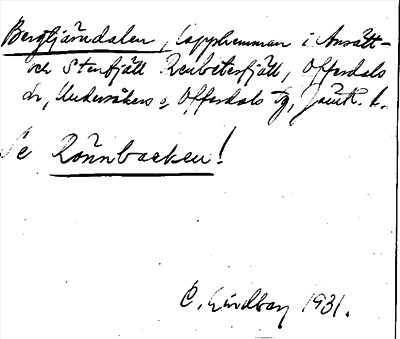 Bergtjärndalen, lapphemman i Ansätt-
och Stenfjäll Renbetesfjäll, Offerdals
Undersåkers o. Offerdals tg, Jämtl. l.
Se Rönnbacken!
C. Lindbay 1931.